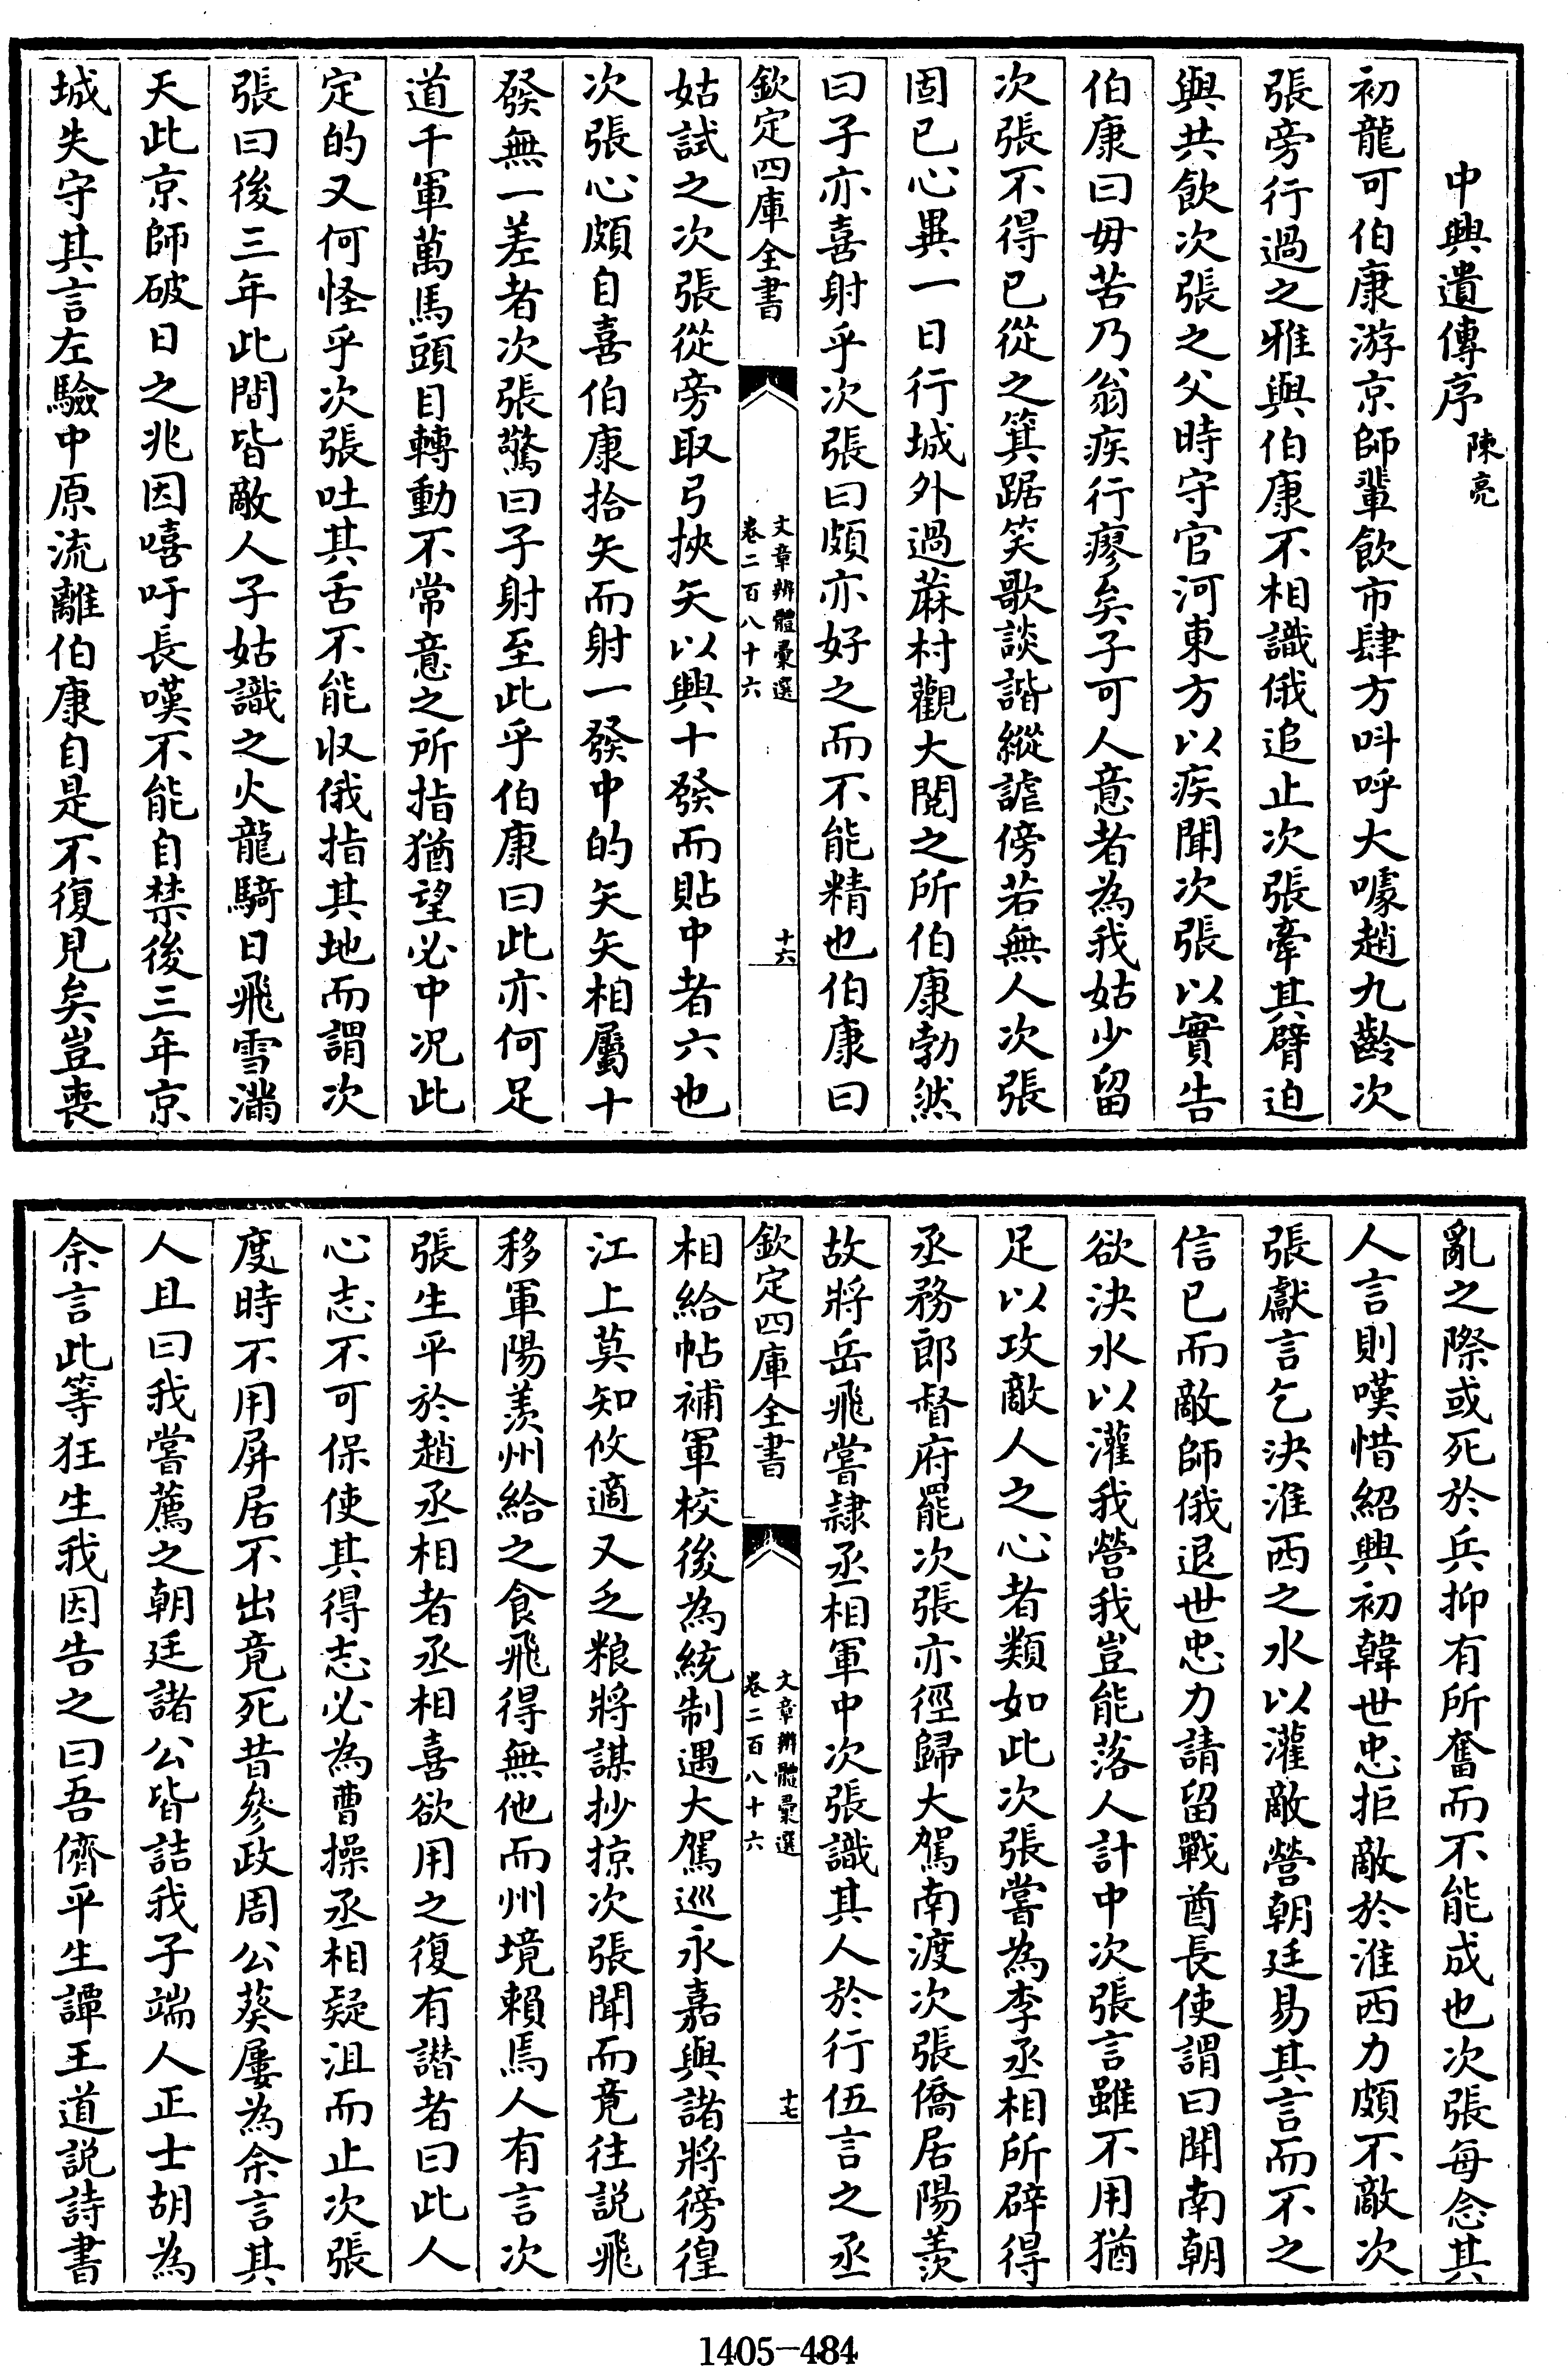 中興遺傳序 陳亮
初龍可伯康游京師輩飲市肆方呌呼大噱趙九齡次
張旁行過之雅與伯康不相識俄追止次張牽其臂迫
與共飲次張之父時守官河東方以疾聞次張以實告
伯康曰毋苦乃翁疾行瘳矣子可人意者為我姑少留
次張不得已從之箕踞笑歌談諧縱謔傍若無人次張
固已心異一日行城外過蔴村觀大閱之所伯康勃然
曰子亦喜射乎次張曰頗亦好之而不能精也伯康曰
欽定四庫全書 文章辨體彚選 卷二百八十六 十六
姑試之次張從旁取弓挾矢以興十發而貼中者六也
次張心頗自喜伯康拾矢而射一發中的矢矢相屬十
發無一差者次張驚曰子射至此乎伯康曰此亦何足
道千軍萬馬頭目轉動不常意之所指猶望必中况此
定的又何怪乎次張吐其舌不能收俄指其地而謂次
張曰後三年此間皆敵人子姑識之火龍騎日飛雪滿
天此京師破日之兆因嘻吁長嘆不能自禁後三年京
城失守其言左驗中原流離伯康自是不復見矣豈喪
亂之際或死於兵抑有所奮而不能成也次張每念其
人言則嘆惜紹興初韓世忠拒敵於淮西力頗不敵次
張獻言乞決淮西之水以灌敵營朝廷易其言而不之
信已而敵師俄退世忠力請留戰酋長使謂曰聞南朝
欲決水以灌我營我豈能落人計中次張言雖不用猶
足以攻敵人之心者類如此次張嘗為李丞相所辟得
丞務郎督府罷次張亦徑歸大駕南渡次張僑居陽羡
故將岳飛嘗隷丞相軍中次張識其人於行伍言之丞
欽定四庫全書 文章辨體彚選 卷二百八十六 十七
相給帖補軍校後為統制遇大駕巡永嘉與諸將徬徨
江上莫知攸適又乏粮將謀抄掠次張聞而竟往説飛
移軍陽羡州給之食飛得無他而州境賴焉人有言次
張生平於趙丞相者丞相喜欲用之復有譖者曰此人
心志不可保使其得志必為曹操丞相疑沮而止次張
度時不用屏居不出竟死昔參政周公葵屢為余言其
人且曰我嘗薦之朝廷諸公皆詰我子端人正士胡為
余言此等狂生我因告之曰吾儕平生譚王道説詩書
1405-484